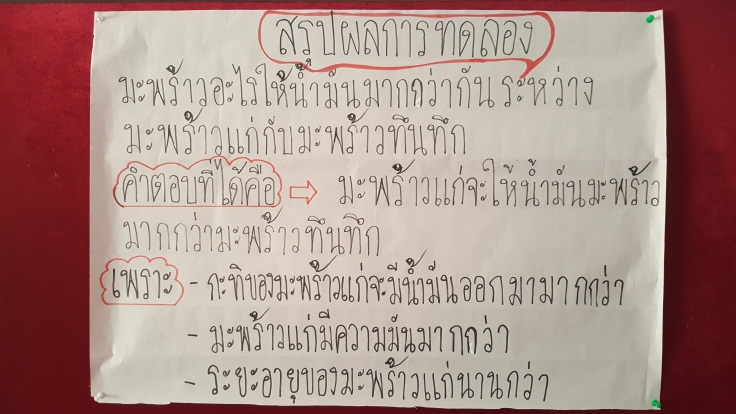 สรุปผลการทดลอง
มะพร้าวอะไรให้น้ำมันมากกว่ากัน ระหว่าง
มะพร้าวแก่กับมะพร้าวทึนทึก
คำตอบที่ได้คือ ⇨ มะพร้าวแก่จะให้น้ำมันมะพร้าว
มากกว่ามะพร้าวทึนทึก
เพราะ - กะทิของมะพร้าวแก่จะมีน้ำมันออกมามากกว่า
- มะพร้าวแก่มีความมันมากกว่า
- ระยะอายุของมะพร้าวแก่นานกว่า